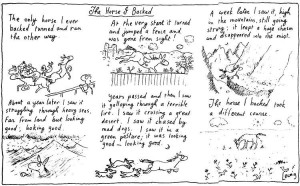 The Horse I Backed
The only horse I ever
backed turned and ran
the other way.
About a year later I saw it
struggling through heavy seas.
Far from land but looking
good; looking good.
At the very start it turned
and jumped a fence and
was gone from sight.
Years passed and then I saw
it galloping through a terrible
fire. I saw it crossing a great
desert. I saw it chased by
mad dogs. I saw it in a
green pasture; it was looking
good – looking good.
A week later I saw it, high
in the mountains, still going
strong; it leapt a huge chasm
and disappeared into the mist.
The horse I backed took
a different course.